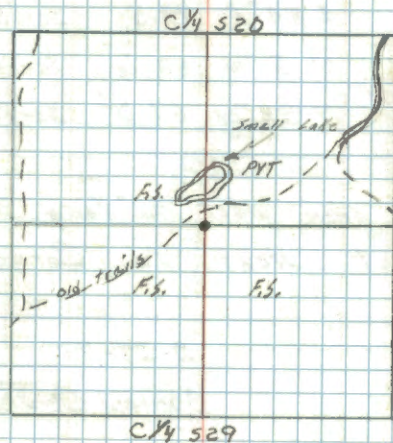 C 1/4 S20
Small Lake
PVT
F.S.
old trails
F.S.
F.S.
C 1/4 S29